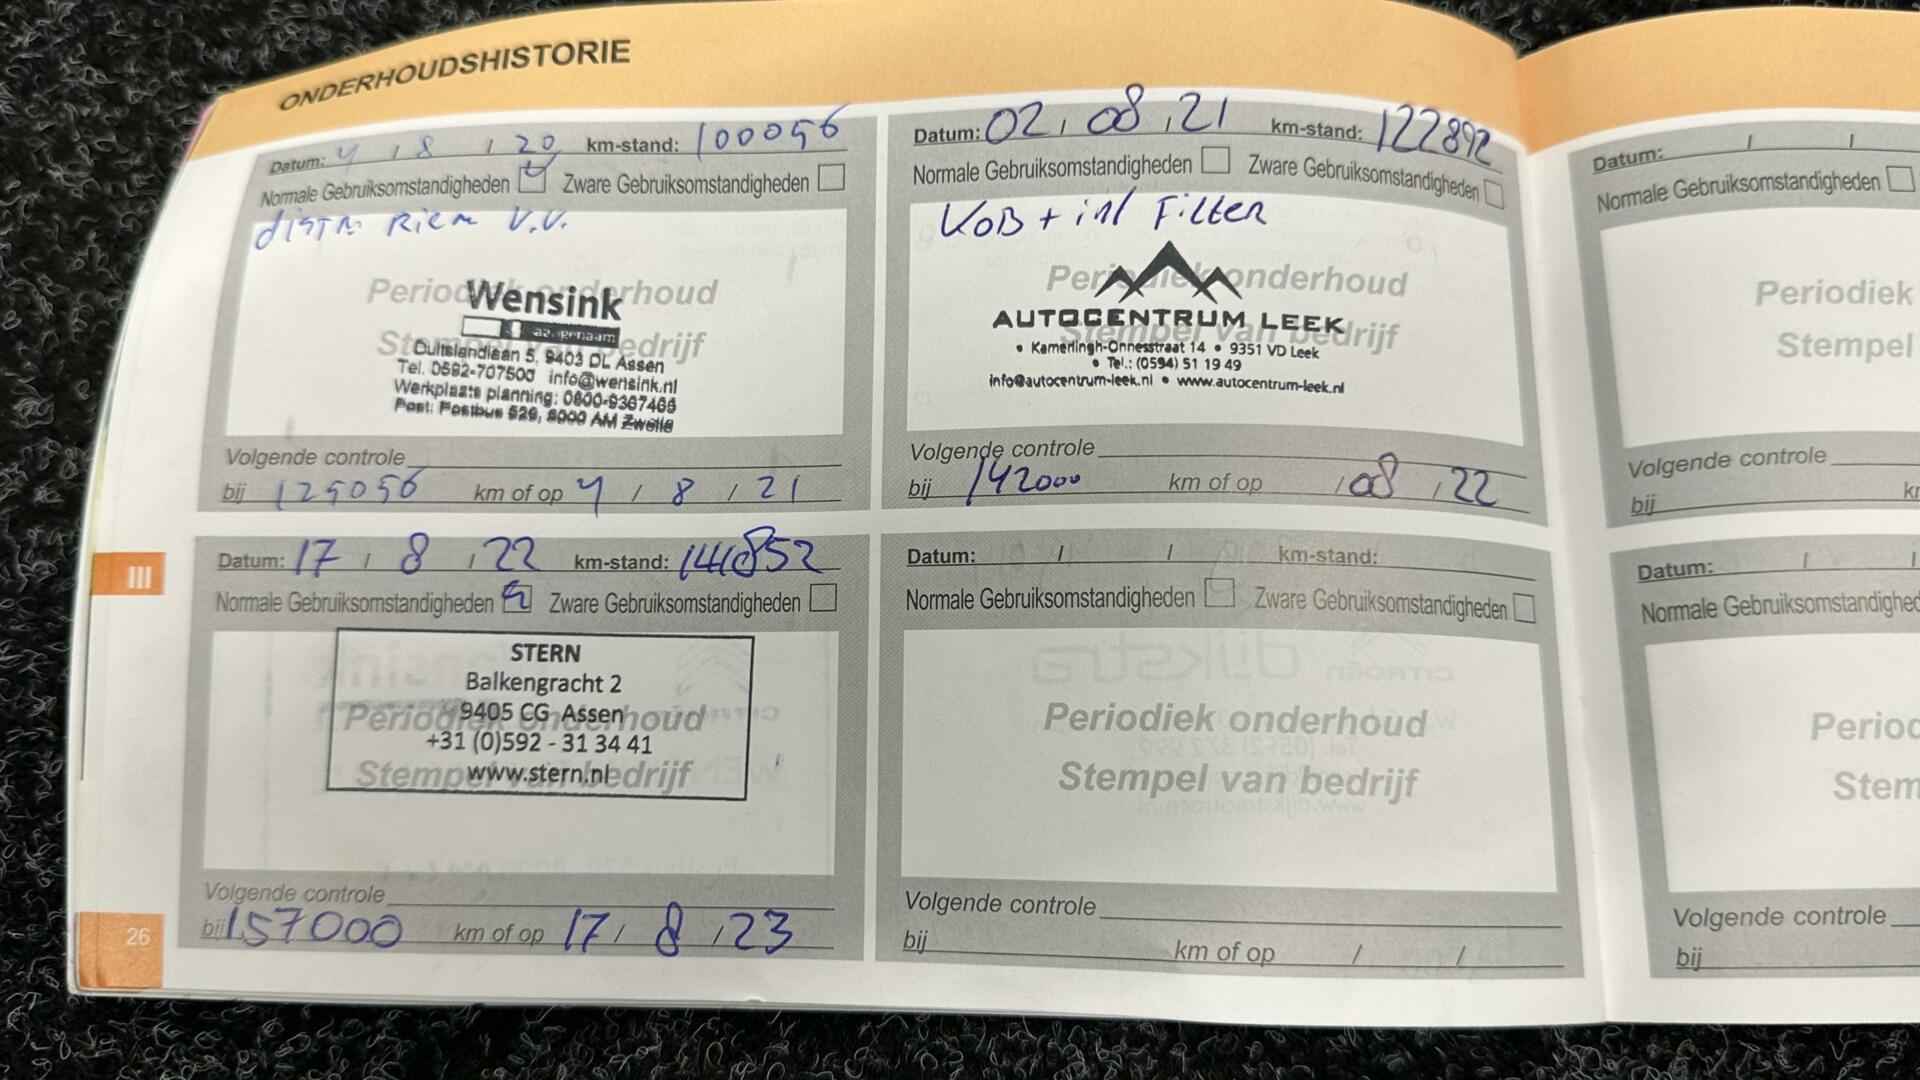 ONDERHOUDSHISTORIE
Datum: 4 / 8 / 20 km-stand: 100056
Normale Gebruiksomstandigheden Zware Gebruiksomstandigheden
distr Riem V.V.
Periodiek onderhoud
Stempel van bedrijf
Wensink
Duitslandlaan 5, 9403 DL Assen
Tel. 0592-707500 info@wensink.nl
Werkplaats planning: 0800-9367466
Post: Postbus 529, 8000 AM Zwolle
Volgende controle
bij 125056 km of op 4 / 8 / 21
Datum: 02 / 08 / 21 km-stand: 122892
Normale Gebruiksomstandigheden Zware Gebruiksomstandigheden
KOB + int Filter
Periodiek onderhoud
Stempel van bedrijf
AUTOCENTRUM LEEK
• Kamerlingh-Onnesstraat 14 • 9351 VD Leek
• Tel.: (0594) 51 19 49
info@autocentrum-leek.nl • www.autocentrum-leek.nl
Volgende controle
bij 142000 km of op / 08 / 22
Datum: 17 / 8 / 22 km-stand: 141852
Normale Gebruiksomstandigheden Zware Gebruiksomstandigheden
Periodiek onderhoud
Stempel van bedrijf
STERN
Balkengracht 2
9405 CG Assen
+31 (0)592 - 31 34 41
www.stern.nl
Volgende controle
bij 157000 km of op 17 / 8 / 23
Datum: / / km-stand:
Normale Gebruiksomstandigheden Zware Gebruiksomstandigheden
Periodiek onderhoud
Stempel van bedrijf
Volgende controle
bij km of op / /
Datum: / /
Normale Gebruiksomstandigheden
Periodiek
Stempel
Volgende controle
bij
Datum: /
Normale
Volgende controle
bij
III
26